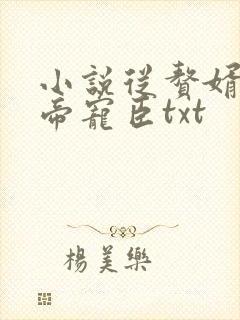 小説從贅婿
帝寵臣txt
楊美樂